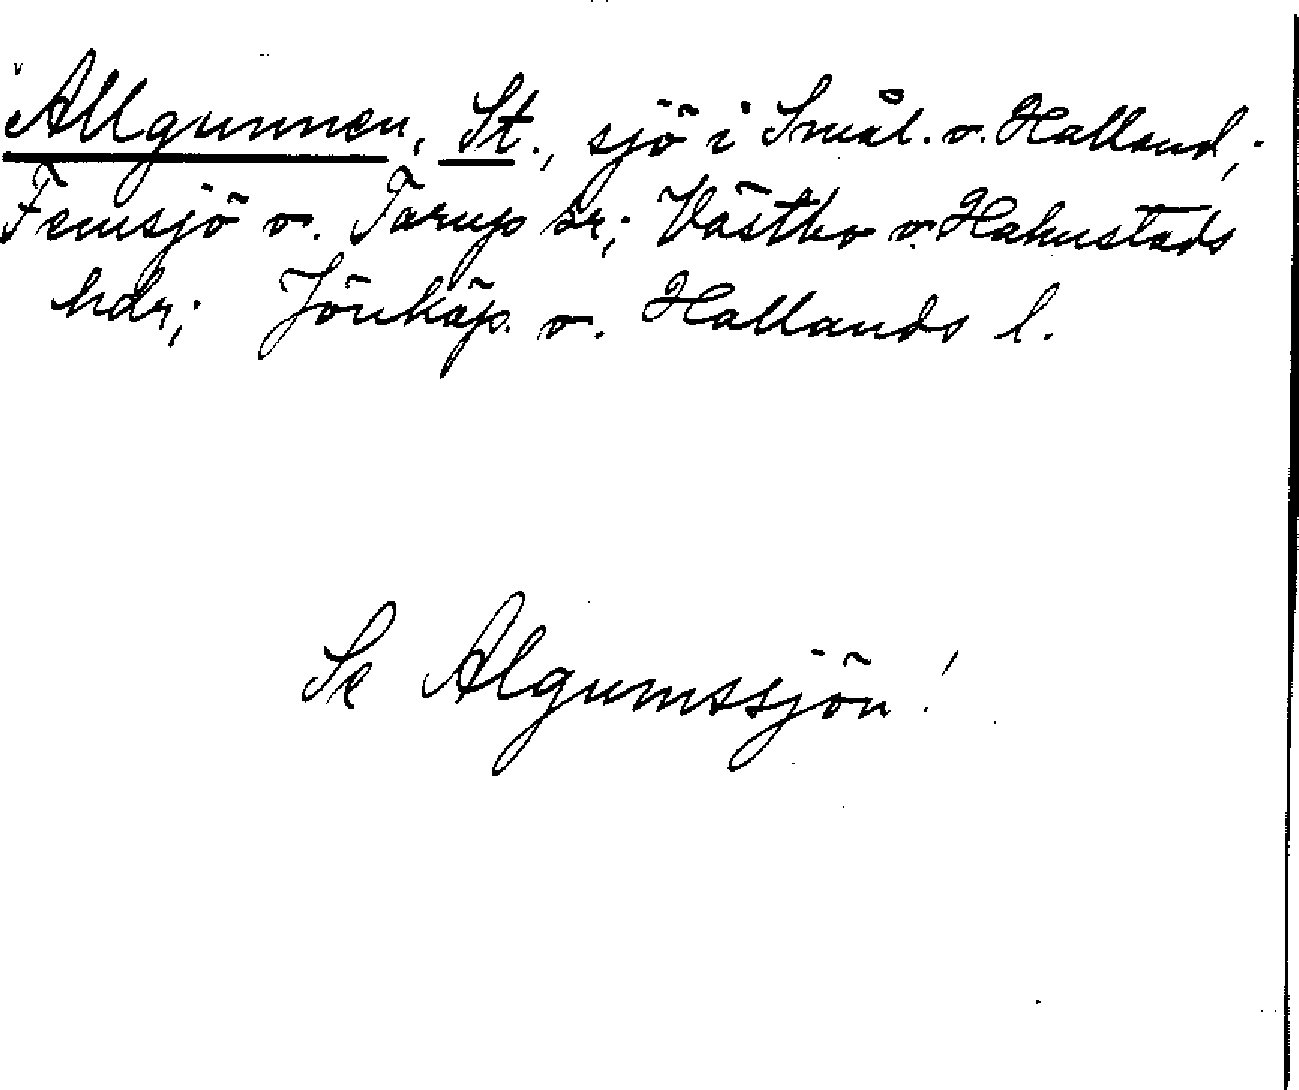 Allgunnen, St., sjö i Smål. o. Halland;
Femsjö o. Torup snr; Västbo o. Halmstads
hdr; Jönköp. o. Hallands l.
Se Algumssjön!